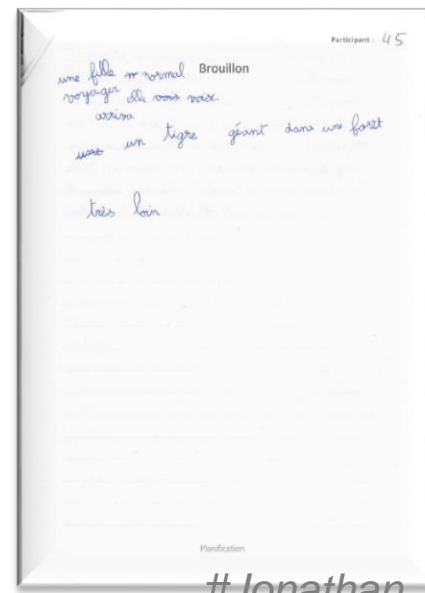 Participant : 45
Brouillon
une fille n normal
voyager elle vois voise
arriva
un tigre géant dans une foret
très loin
Planification
# Jonathan